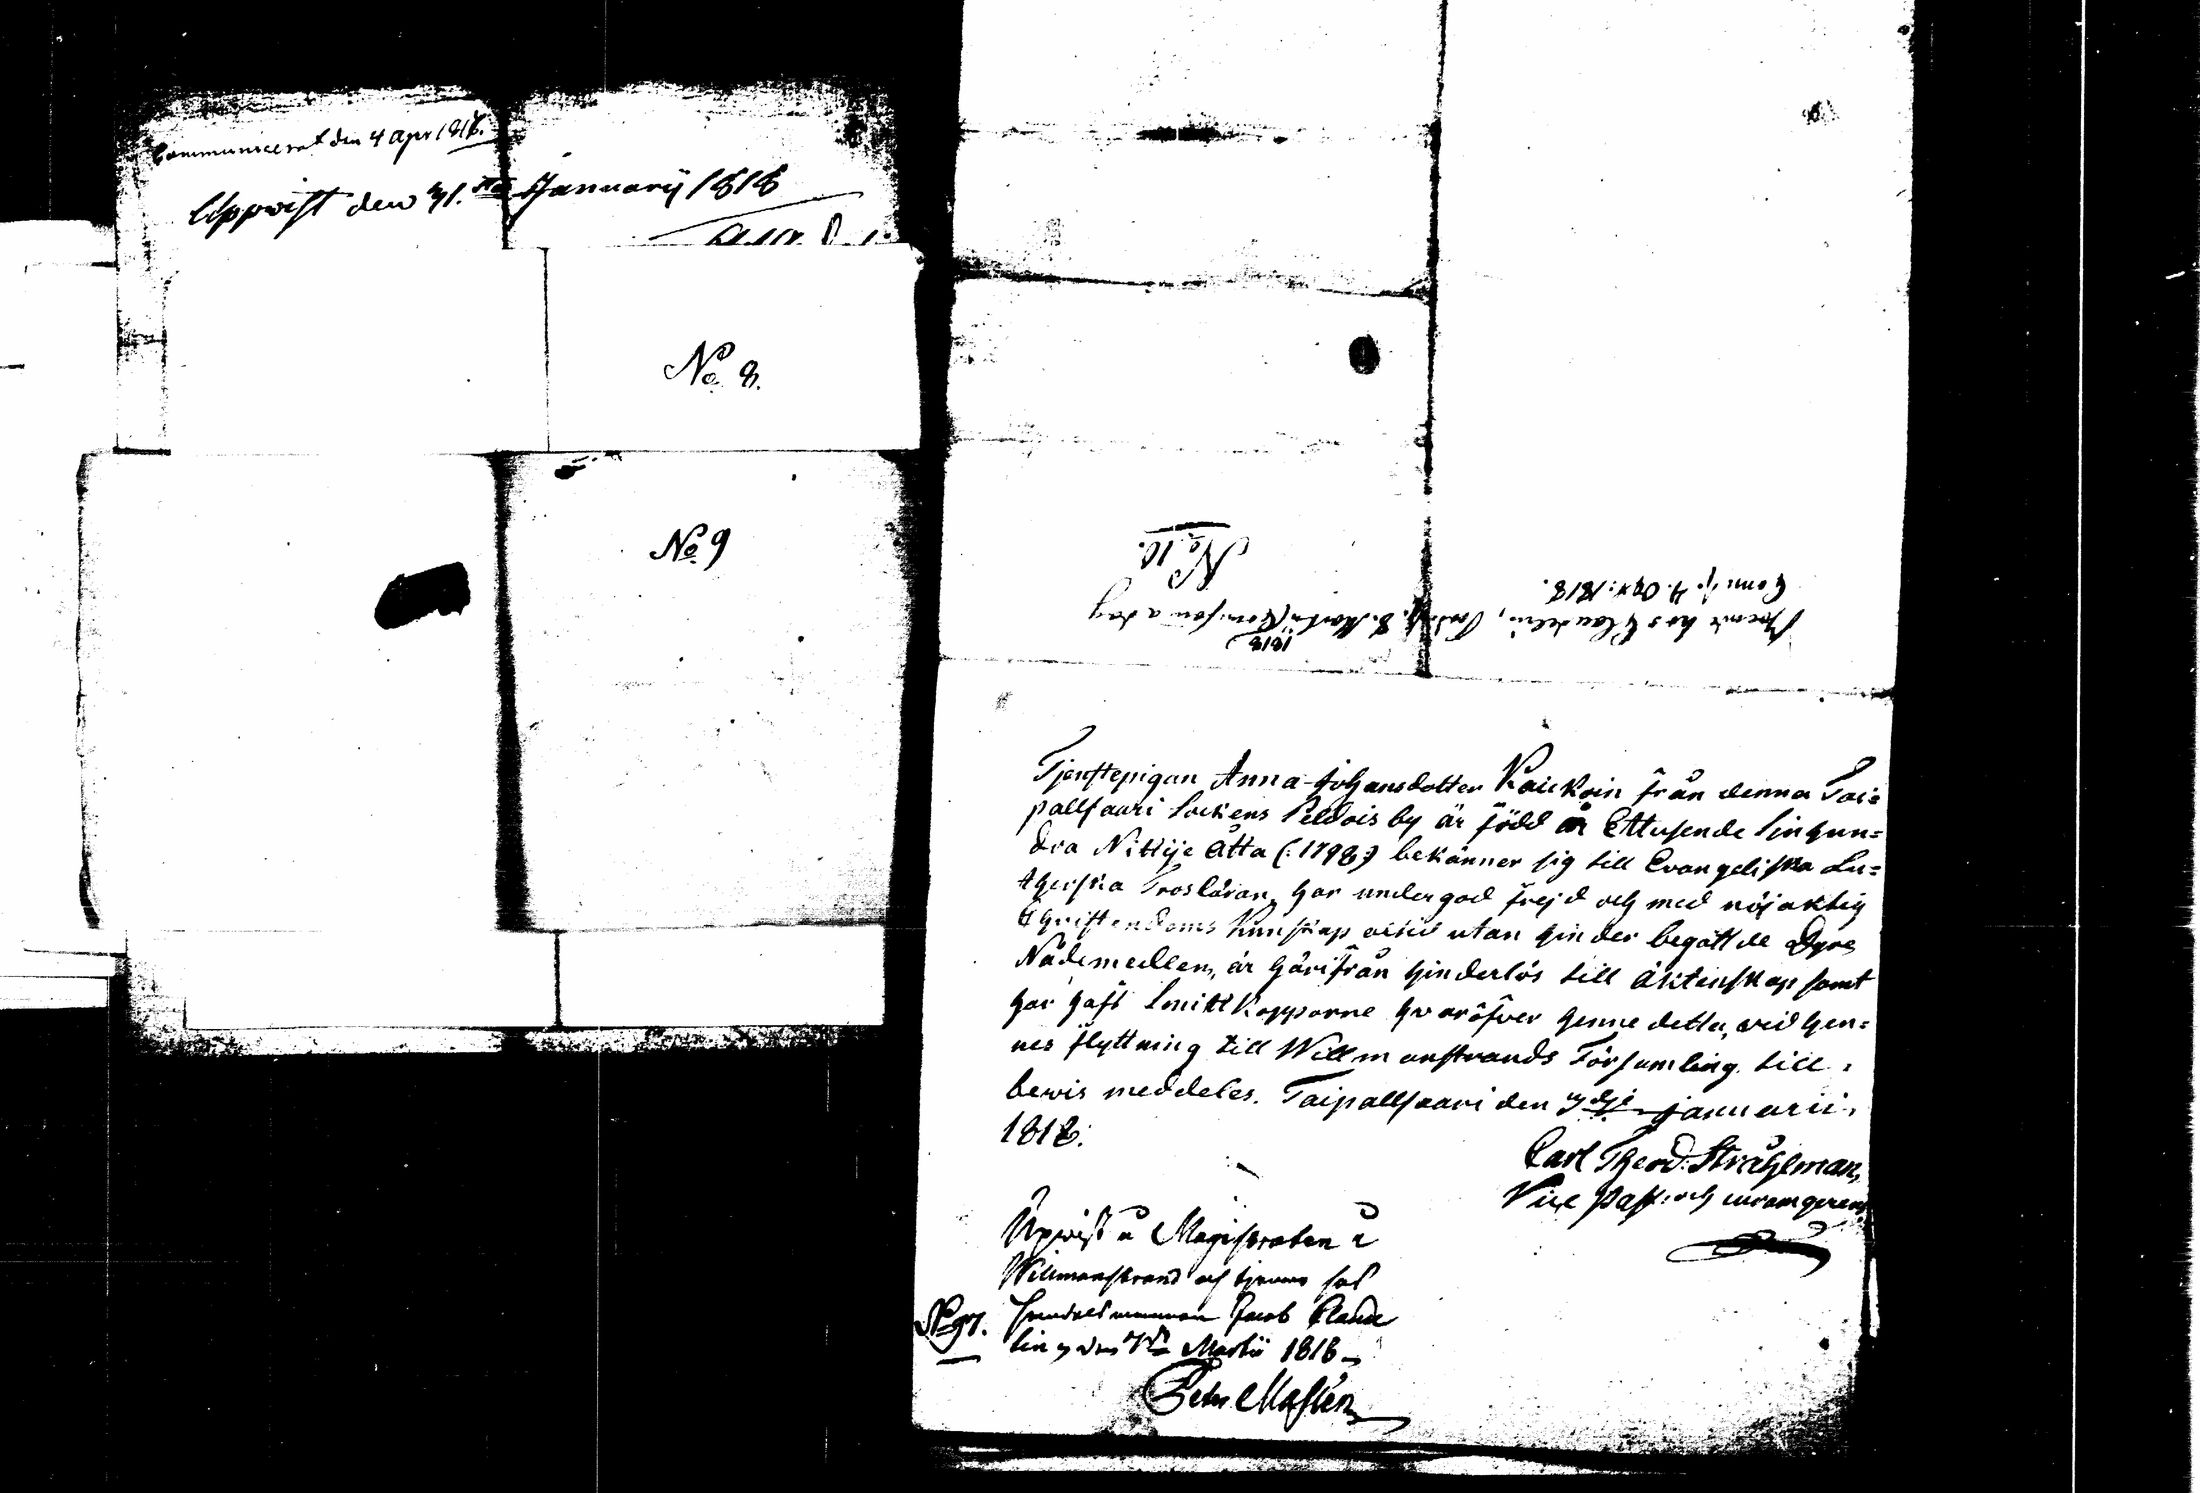 Communicerat den 4 Apr 1818.
Uppvist den 31.sta January 1818
No 8.
No 9
No 10.
Com. d. 4. Apr. 1818.
1818
Tjenstepigan Anna Johansdotter Kaickoin från denna Tai=
pallsaari Sockens Peldois by är född år Ettusende Sjuhun=
dra Nittije åtta (:1798:) bekänner sig till Evangeliska Lu=
therska Trosläran, har under god frejd och med nöjaktig
Christendoms Kunskap utan hinder begått de Dyre
Nådemedlen, är härifrån hinderlös till äktenskap samt
har haft Smittkopporne hvaröfver henne detta, vid hen=
nes flyttning till Willmanstrands Församling till
bevis meddeles. Taipallsaari den 3dje Januarii
1818.
Carl Theod. Stråhlman,
Vice Past. och
Upvist u Magistraten i
Willmanstrand och tjenar hos
Handelsmannen Jacob Clande
lin den 7de Martii 1818
No 97.
Peter Maslen